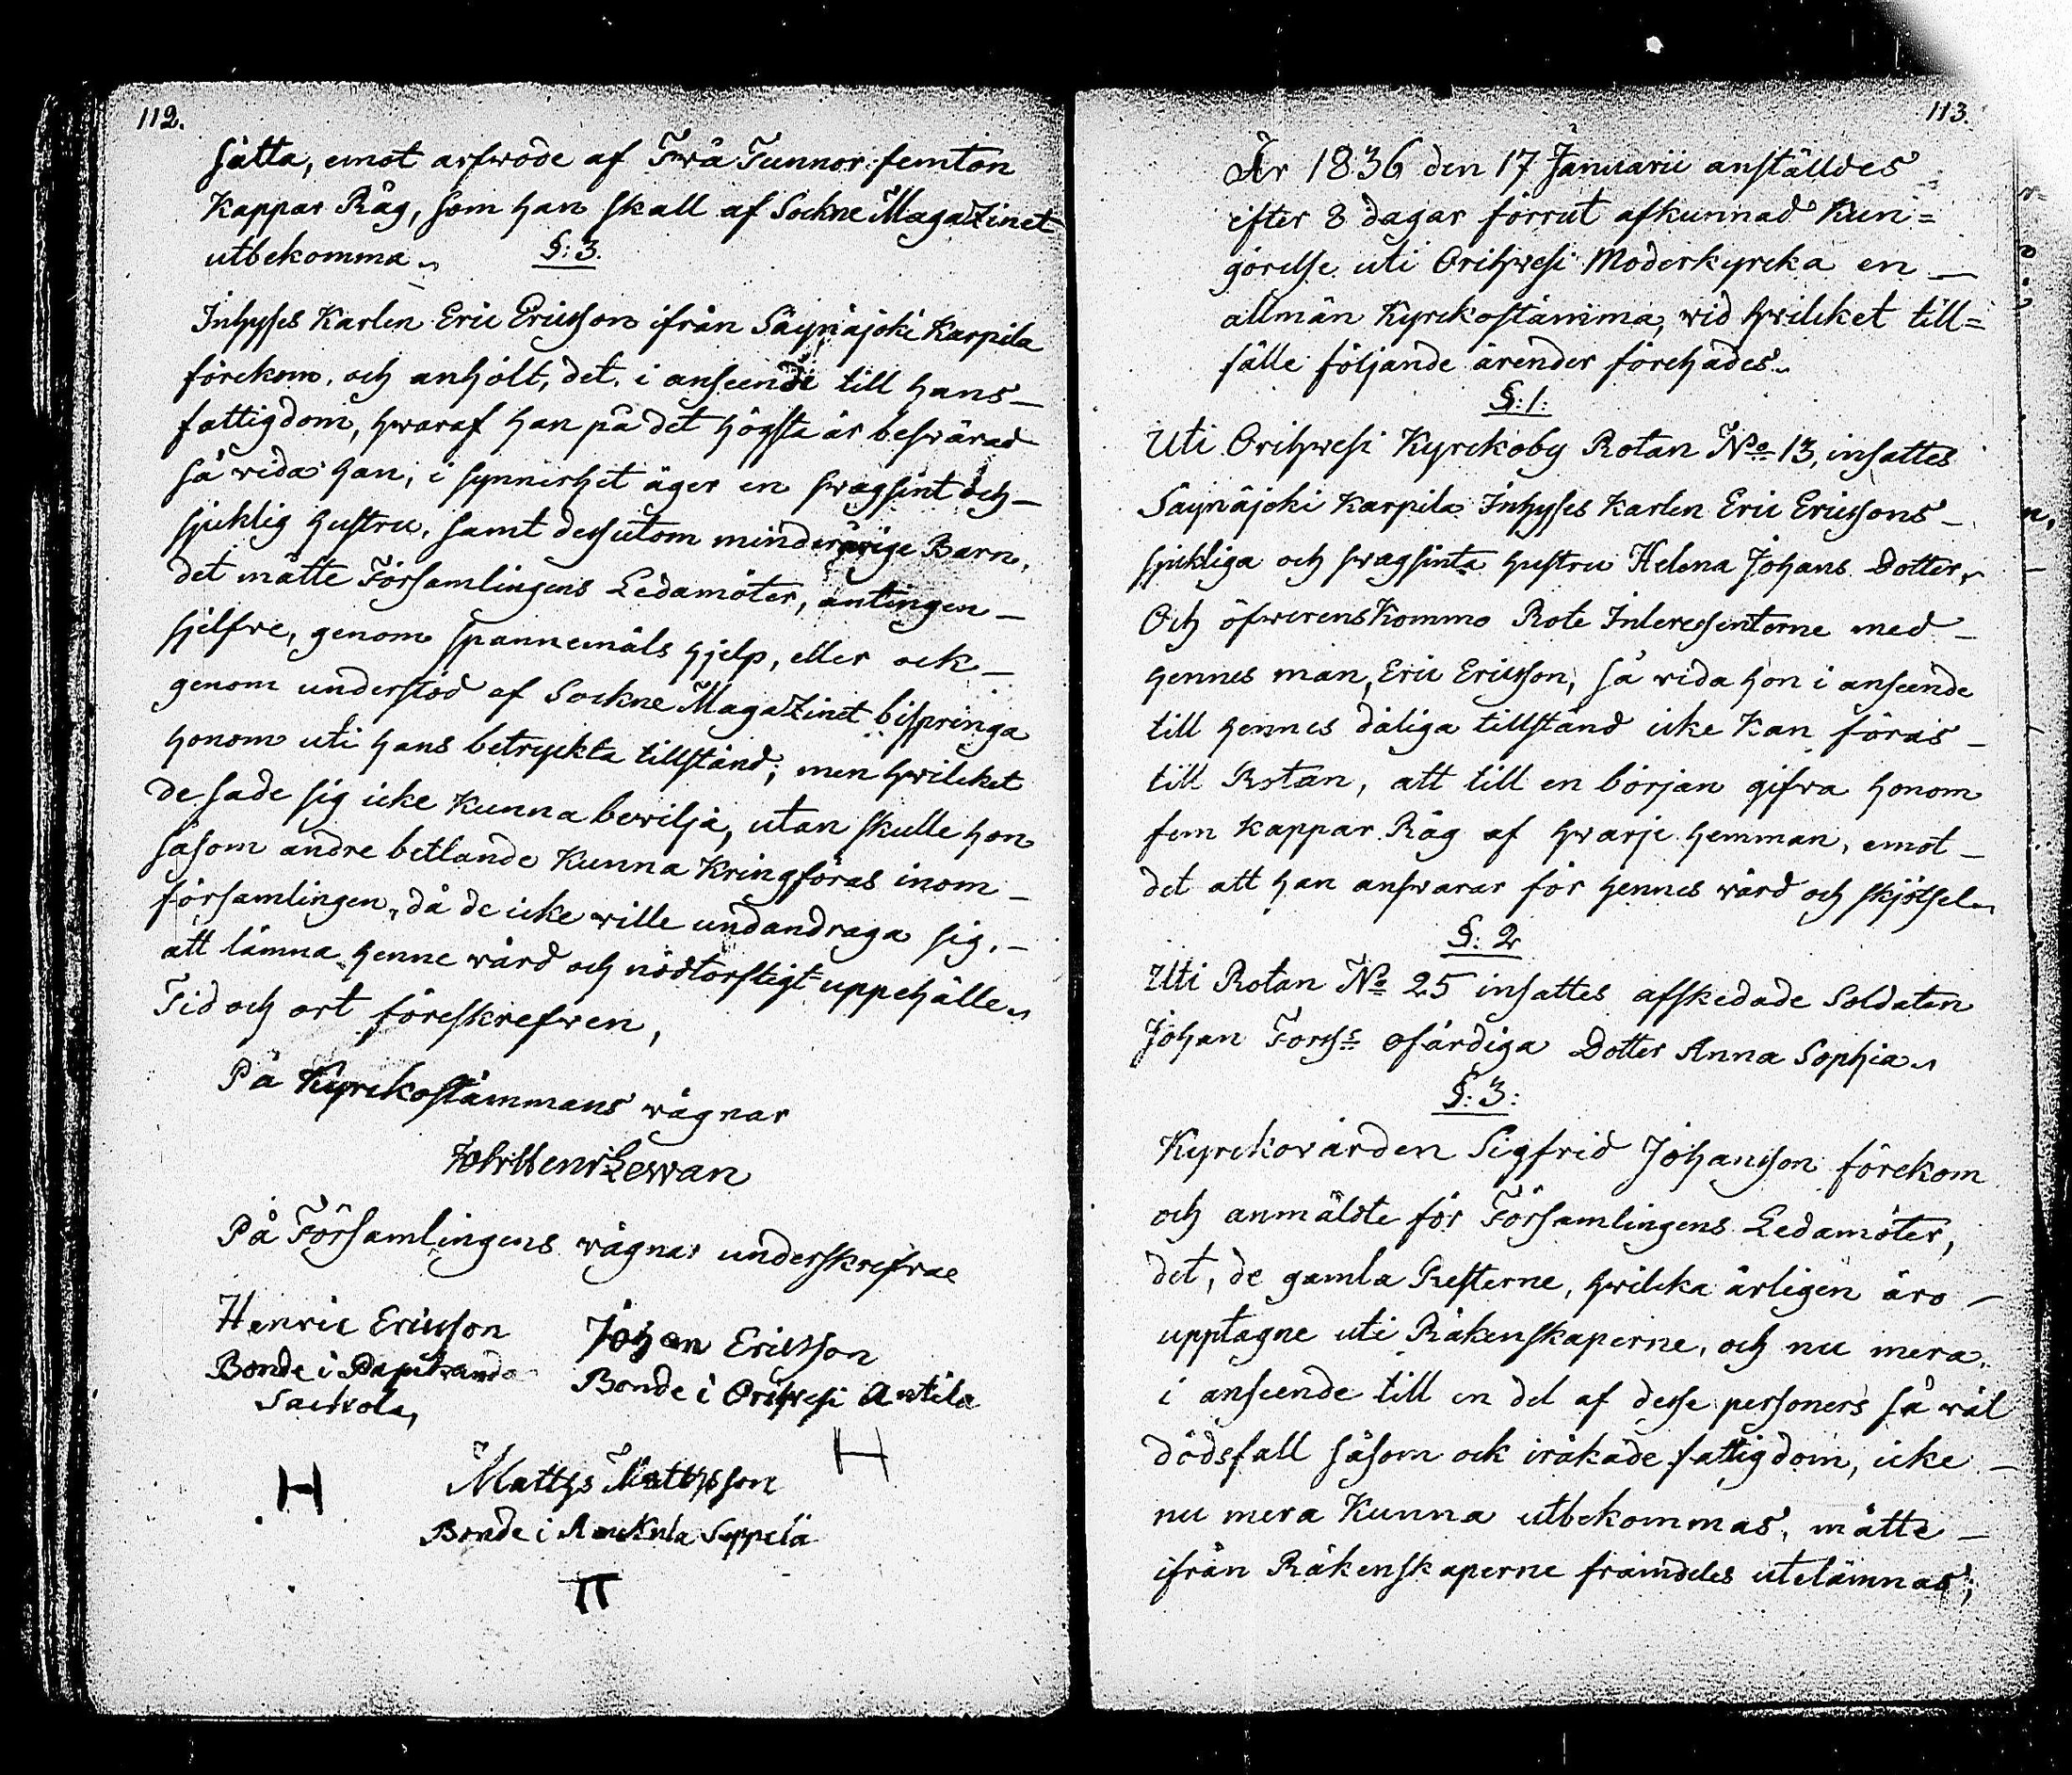 112.
sätta, emot arfwode af Twå Tunnor femton
Kappar Råg, som han skall af Sockne Magazinet
utbekomma.
§: 3.
Inhyses Karlen Eric Ericsson ifrån Säynäjoki Karpila
förekom, och anholt, det, i anseende till hans
fattigdom, hwaraf han på det högsta är beswärad
så wida han, i synnerhet äger en swagsint och
sjuklig hustru, samt dessutom minderårige Barn,
det måtte Församlingens Ledamöter, antingen
sjelfwe, genom spannemåls hjelp, eller ock
genom understöd af Sockne Magazinet bispringa
honom uti hans betryckta tillstånd; men hwilcket
de sade sig icke kunna bewilja, utan skulle hon
såsom andre betlande kunna kringföras inom
församlingen, då de icke wille undandraga sig,
att lämna henne wård och nödtorftigt uppehälle.
Tid och ort föreskrefwen,
På Kyrckostämmans wägnar
Joh: Henr Lewan
På Församlingens wägnar underskrefwae
Henric Ericsson
Bonde i Papinranda
Sackola,
Johan Ericsson
Bonde i Orihwesi Antila
H
H
Matths Mattsson
Bonde i Seppelä
π
113.
År 1836 den 17 Januarii anställdes
efter 8 dagar förrut afkunnad Kun=
görelse uti Orihwesi Moderkyrcka en
allmän Kyrckostämma, wid hwilcket till=
fälle följande ärender förehades.
§: 1:
Uti Orihwesi Kyrckoby Rotan No 13, insattes
Säynäjoki Karpila Inhyses Karlen Eric Ericssons
sjukliga och swagsinta hustru Helena Johans Dotter,
Och öfwerenskommo Rote Interessenterne med
hennes man, Eric Ericsson, så wida hon i anseende
till hennes dåliga tillstånd icke kan föras
till Rotan, att till en början gifwa honom
fem kappar Råg af hwarje hemman, emot
det att han answarar för hennes wård och skjötsel.
§: 2
Uti Rotan No 25 insattes afskedade Soldaten
Johan Forss ofärdiga Dotter Anna Sophia.
§: 3:
Kyrckowärden Sigfrid Johansson förekom
och anmälte för Församlingens Ledamöter,
det, de gamla Resterne, hwilcka årligen äro
upptagne uti Räkenskaperne, och nu mera
i anseende till en del af desse personers så wäl
dödsfall såsom ock iråkade fattigdom, icke
nu mera kunna utbekommas, måtte
ifrån Räkenskaperne framdeles utelämnas;